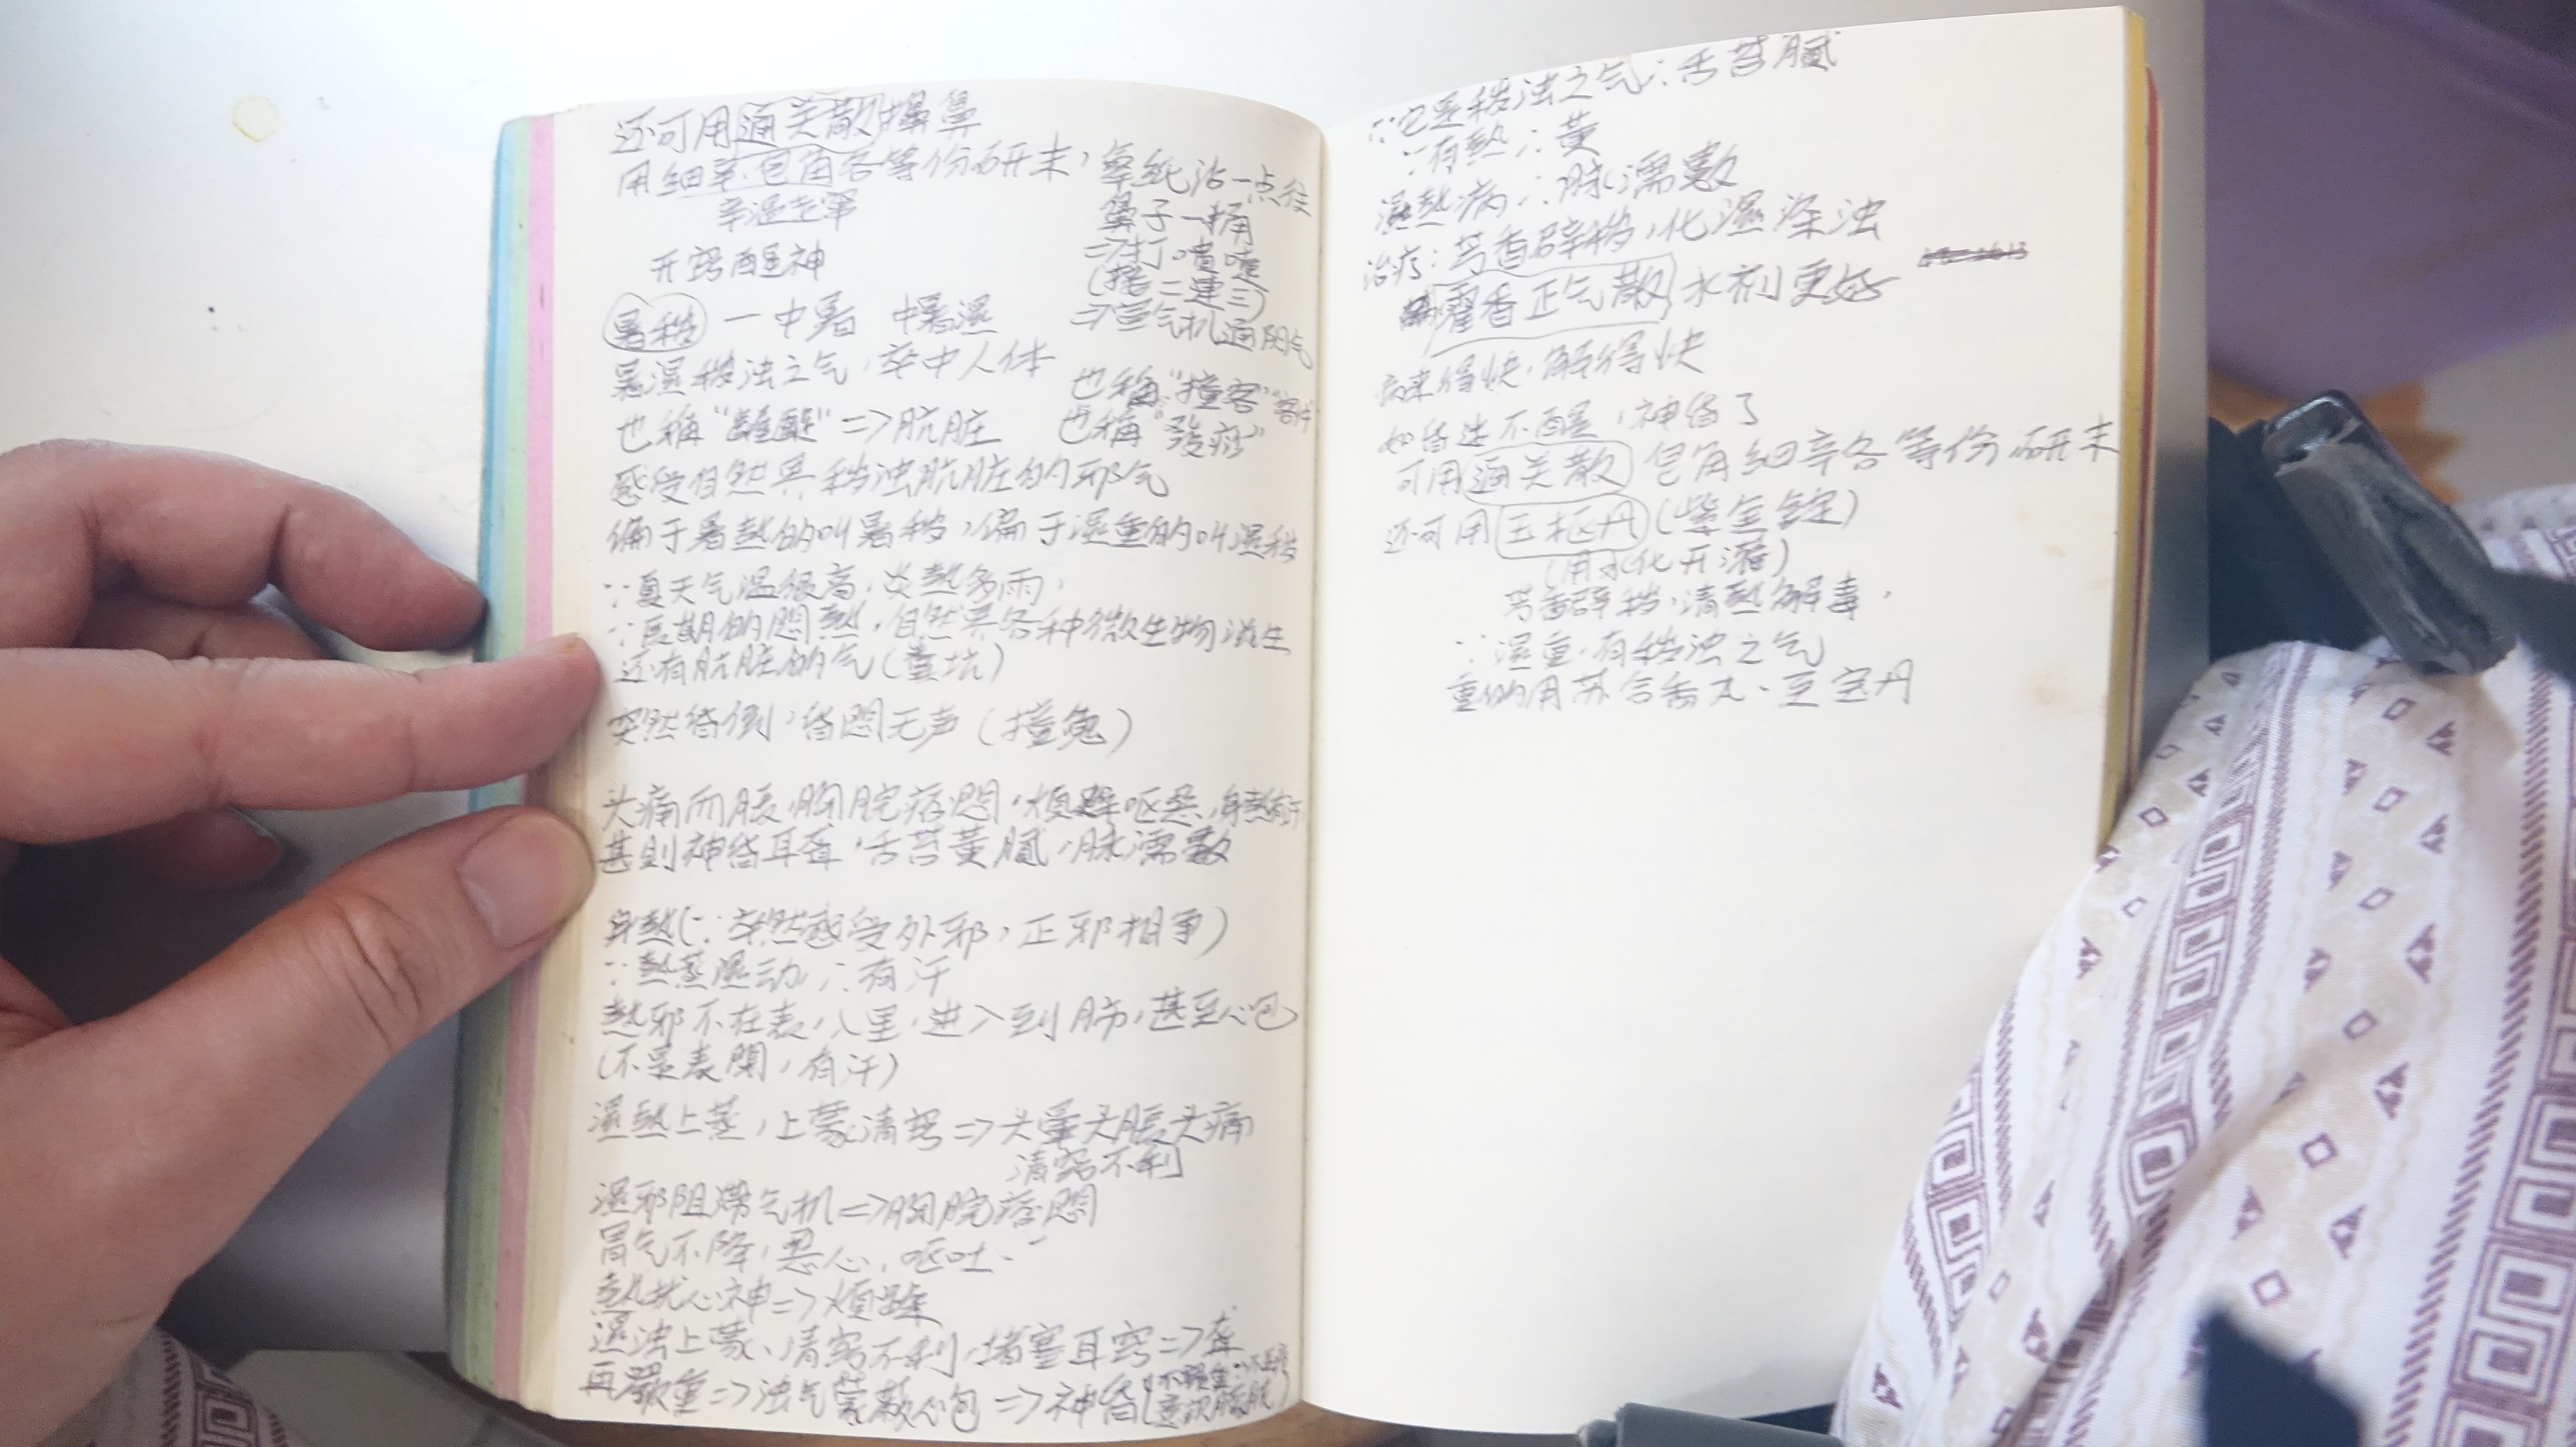 还可用通关散搐鼻
用细辛.皂角各等份研末，卷纸沾一点往
辛温走窜
鼻子一捅
=>打喷嚏
开窍醒神
(接二連三)
=>宣气机通阳气
暑秽 — 中暑 中暑濕
暑濕秽浊之气，卒中人体
也稱"撞客"客忤
也稱"龌龊"=>肮脏
也稱"發痧"
感受自然界秽浊肮脏的邪气
偏于暑熱的叫暑秽，偏于濕重的叫濕秽
∵夏天气温很高，炎熱多雨，
∵長期的悶熱，自然界各种微生物滋生
还有肮脏的气(糞坑)
突然昏倒，昏悶无声(撞鬼)
头痛而脹，胸脘痞悶，煩躁呕恶，身熱有汗
甚則神昏耳聋，舌苔黃膩，脉濡數
身熱(∵卒然感受外邪，正邪相爭)
∵熱蒸濕动∴有汗
熱邪不在表，入里，进入到肺，甚至心包
(不是表閉，有汗)
濕熱上蒸，上蒙清窍=>头晕头脹头痛
清窍不利
濕邪阻滞气机=>胸脘痞悶
胃气不降，恶心，呕吐、
熱扰心神=>煩躁
濕浊上蒙、清窍不利，堵塞耳窍=>聋
再嚴重=>浊气蒙蔽心包=>神昏(
意识朦胧)
∵它是秽浊之气∴舌苔膩
∵有熱∴黃
濕熱病∴脉濡數
治疗：芳香辟秽，化濕涤浊
藿香正气散 水剂更好
病来得快，解得快
如昏迷不醒，神昏了
可用通关散 皂角细辛各等份研末
还可用玉枢丹(紫金錠)
(用水化开灌)
芳香辟秽，清熱解毒，
∵濕重，有秽浊之气
重的用苏合香丸、至宝丹